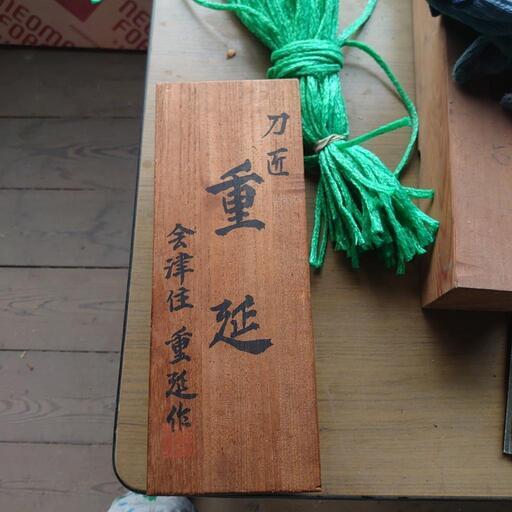 刀匠
重延
会津住 重延作
NEOMA
FOR